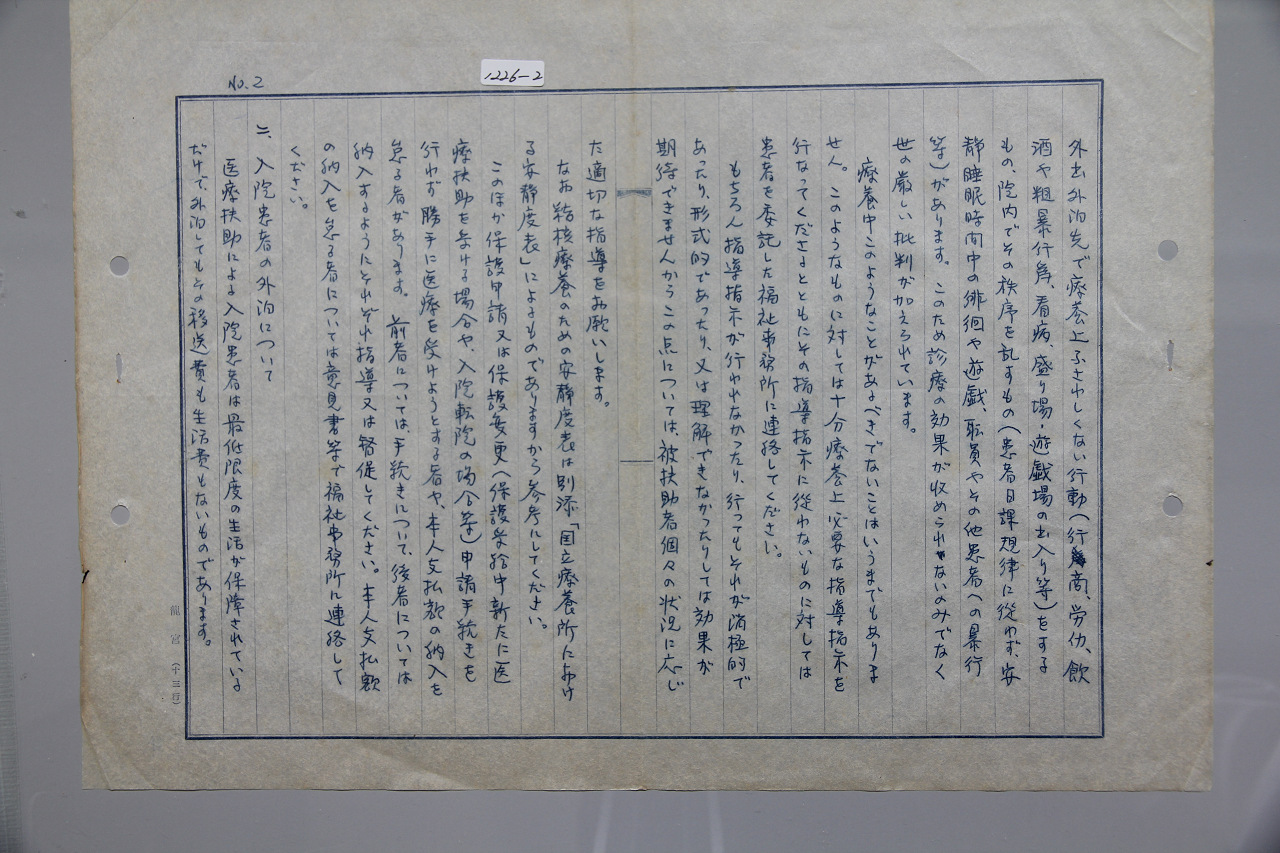 No.2
1226-2
外出外泊先で療養上ふさわしくない行動(行商、労仂、飲
酒や粗暴行為、看病、盛り場・遊戯場の出入り等)をする
もの、院内でその秩序を乱すもの(患者日課規律に従わず、安
静睡眠時間中の徘徊や遊戯、職員やその他患者への暴行
等)があります。このため診療の効果が収められないのみでなく
世の厳しい批判が加えられています。
療養中このようなことがあるべきでないことはいうまでもありま
せん。このようなものに対しては十分療養上必要な指導指示を
行なってくださるとともにその指導指示に従わないものに対しては
患者を委託した福祉事務所に連絡してください。
もちろん指導指示が行われなかったり、行ってもそれが消極的で
あったり、形式的であったり、又は理解できなかったりしては効果が
期待できませんからこの点については、被扶助者個々の状況に応じ
た適切な指導をお願いします。
なお結核療養のための安静度表は別添「国立療養所におけ
る安静度表」によるものでありますから参考にしてください。
このほか保護申請又は保護変更(保護受給中新たに医
療扶助を受ける場合や、入院転院の場合等)申請手続きを
行わず勝手に医療を受けようとする者や、本人支払額の納入を
怠る者があります。前者については、手続きについて、後者については
納入するようにそれぞれ指導又は督促してください。本人支払額
の納入を怠る者については意見書等で福祉事務所に連絡して
ください。
二、入院患者の外泊について
医療扶助による入院患者は最低限度の生活が保障されている
だけで、外泊してもその移送費も生活費もないものであります。
龍宮(十三行)